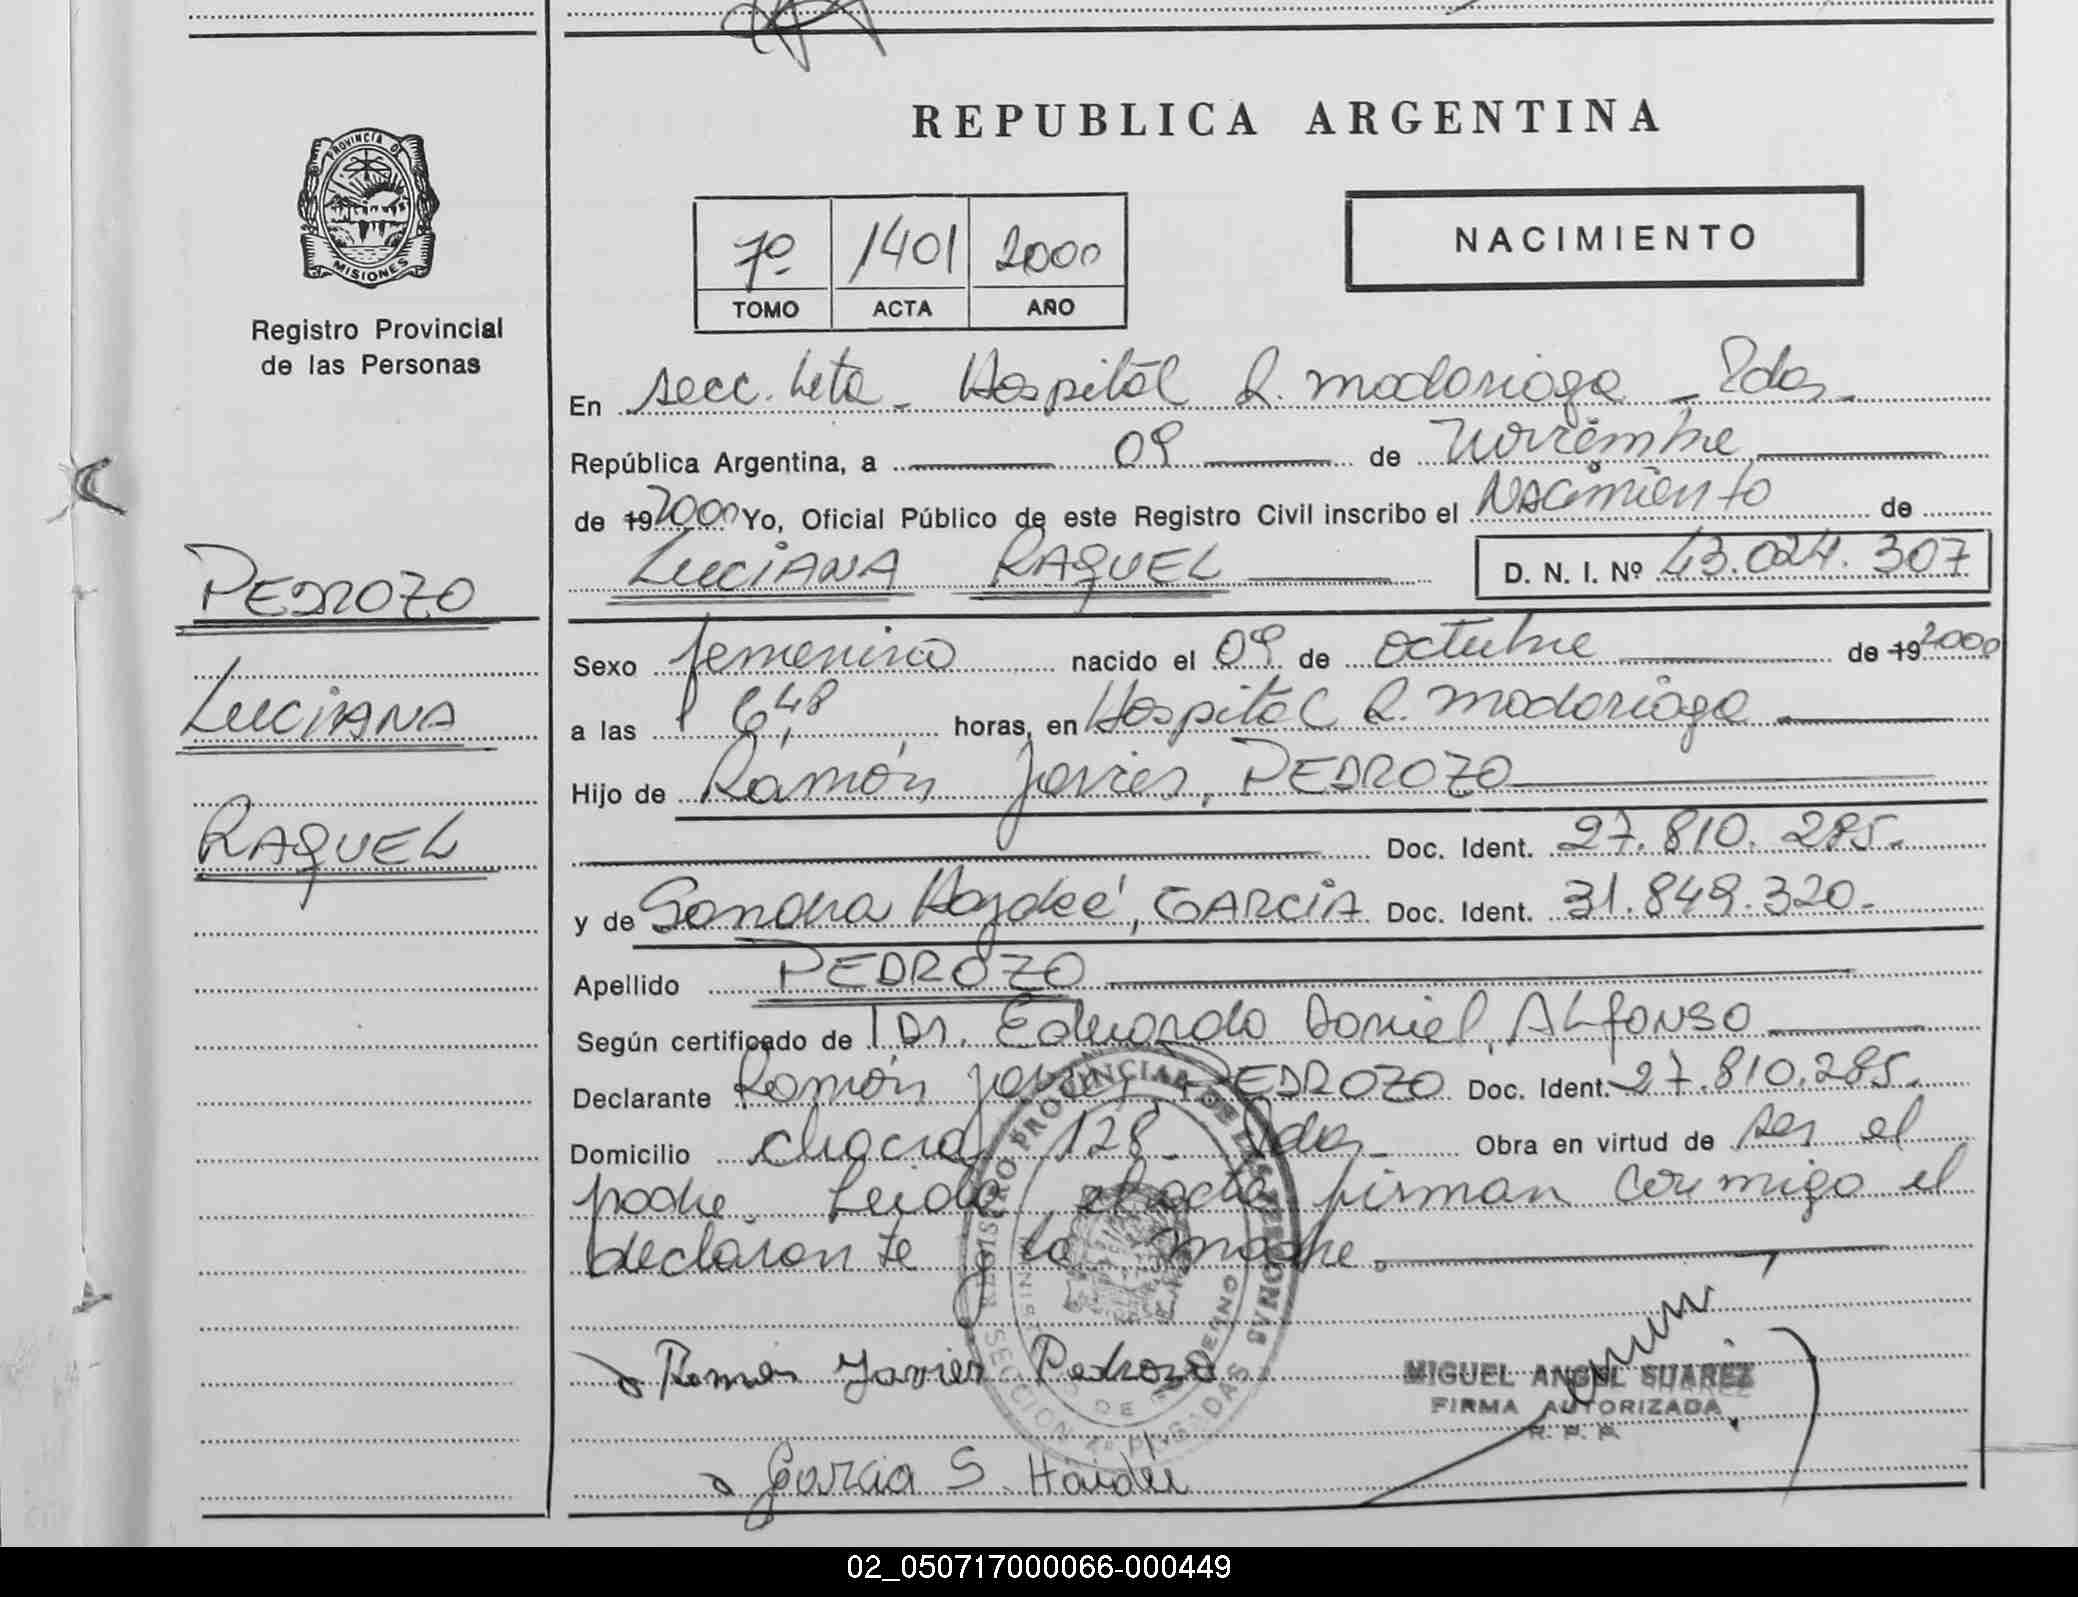 REPUBLICA ARGENTINA
PROVINCIA DE
MISIONES
Registro Provincial
de las Personas
7º 1401 2000
TOMO ACTA AÑO
NACIMIENTO
En secc. 4ta - Hospital R. Madariaga - Pdas -
República Argentina, a 09 de Noviembre
de 19 2000 Yo, Oficial Público de este Registro Civil inscribo el Nacimiento de
LUCIANA RAQUEL D. N. I. Nº 43.024.307
PEDROZO
LUCIANA
RAQUEL
Sexo femenino nacido el 09 de octubre de 19 2000
a las 6,48 horas, en Hospital R. Madariaga
Hijo de Ramón Javier, PEDROZO
Doc. Ident. 27.810.285.
y de Sandra Haydeé, GARCIA Doc. Ident. 31.849.320.
Apellido PEDROZO
Según certificado de Dr. Eduardo Daniel, ALFONSO
Declarante Ramón Javier, PEDROZO Doc. Ident. 27.810.285.
Domicilio chacra 128 - Pdas - Obra en virtud de ser el
padre. Leida el acta firman conmigo el
declarante la madre.
REGISTRO PROVINCIAL DE LAS PERSONAS
SECCION 4ª POSADAS
Ramon Javier Pedrozo
MIGUEL ANGEL SUAREZ
FIRMA AUTORIZADA
R. P. P.
Garcia S. Haidee
02_050717000066-000449